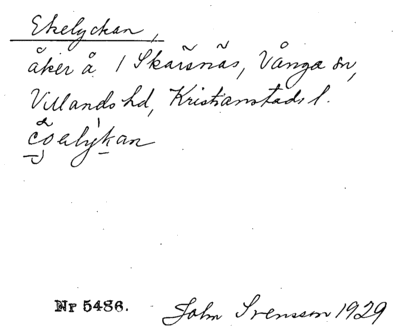 Ekelyckan,
åker å 1 Skärsnäs, Vånga sn,
Villands hd, Kristianstads l.
Nr 5486. John Svensson 1929